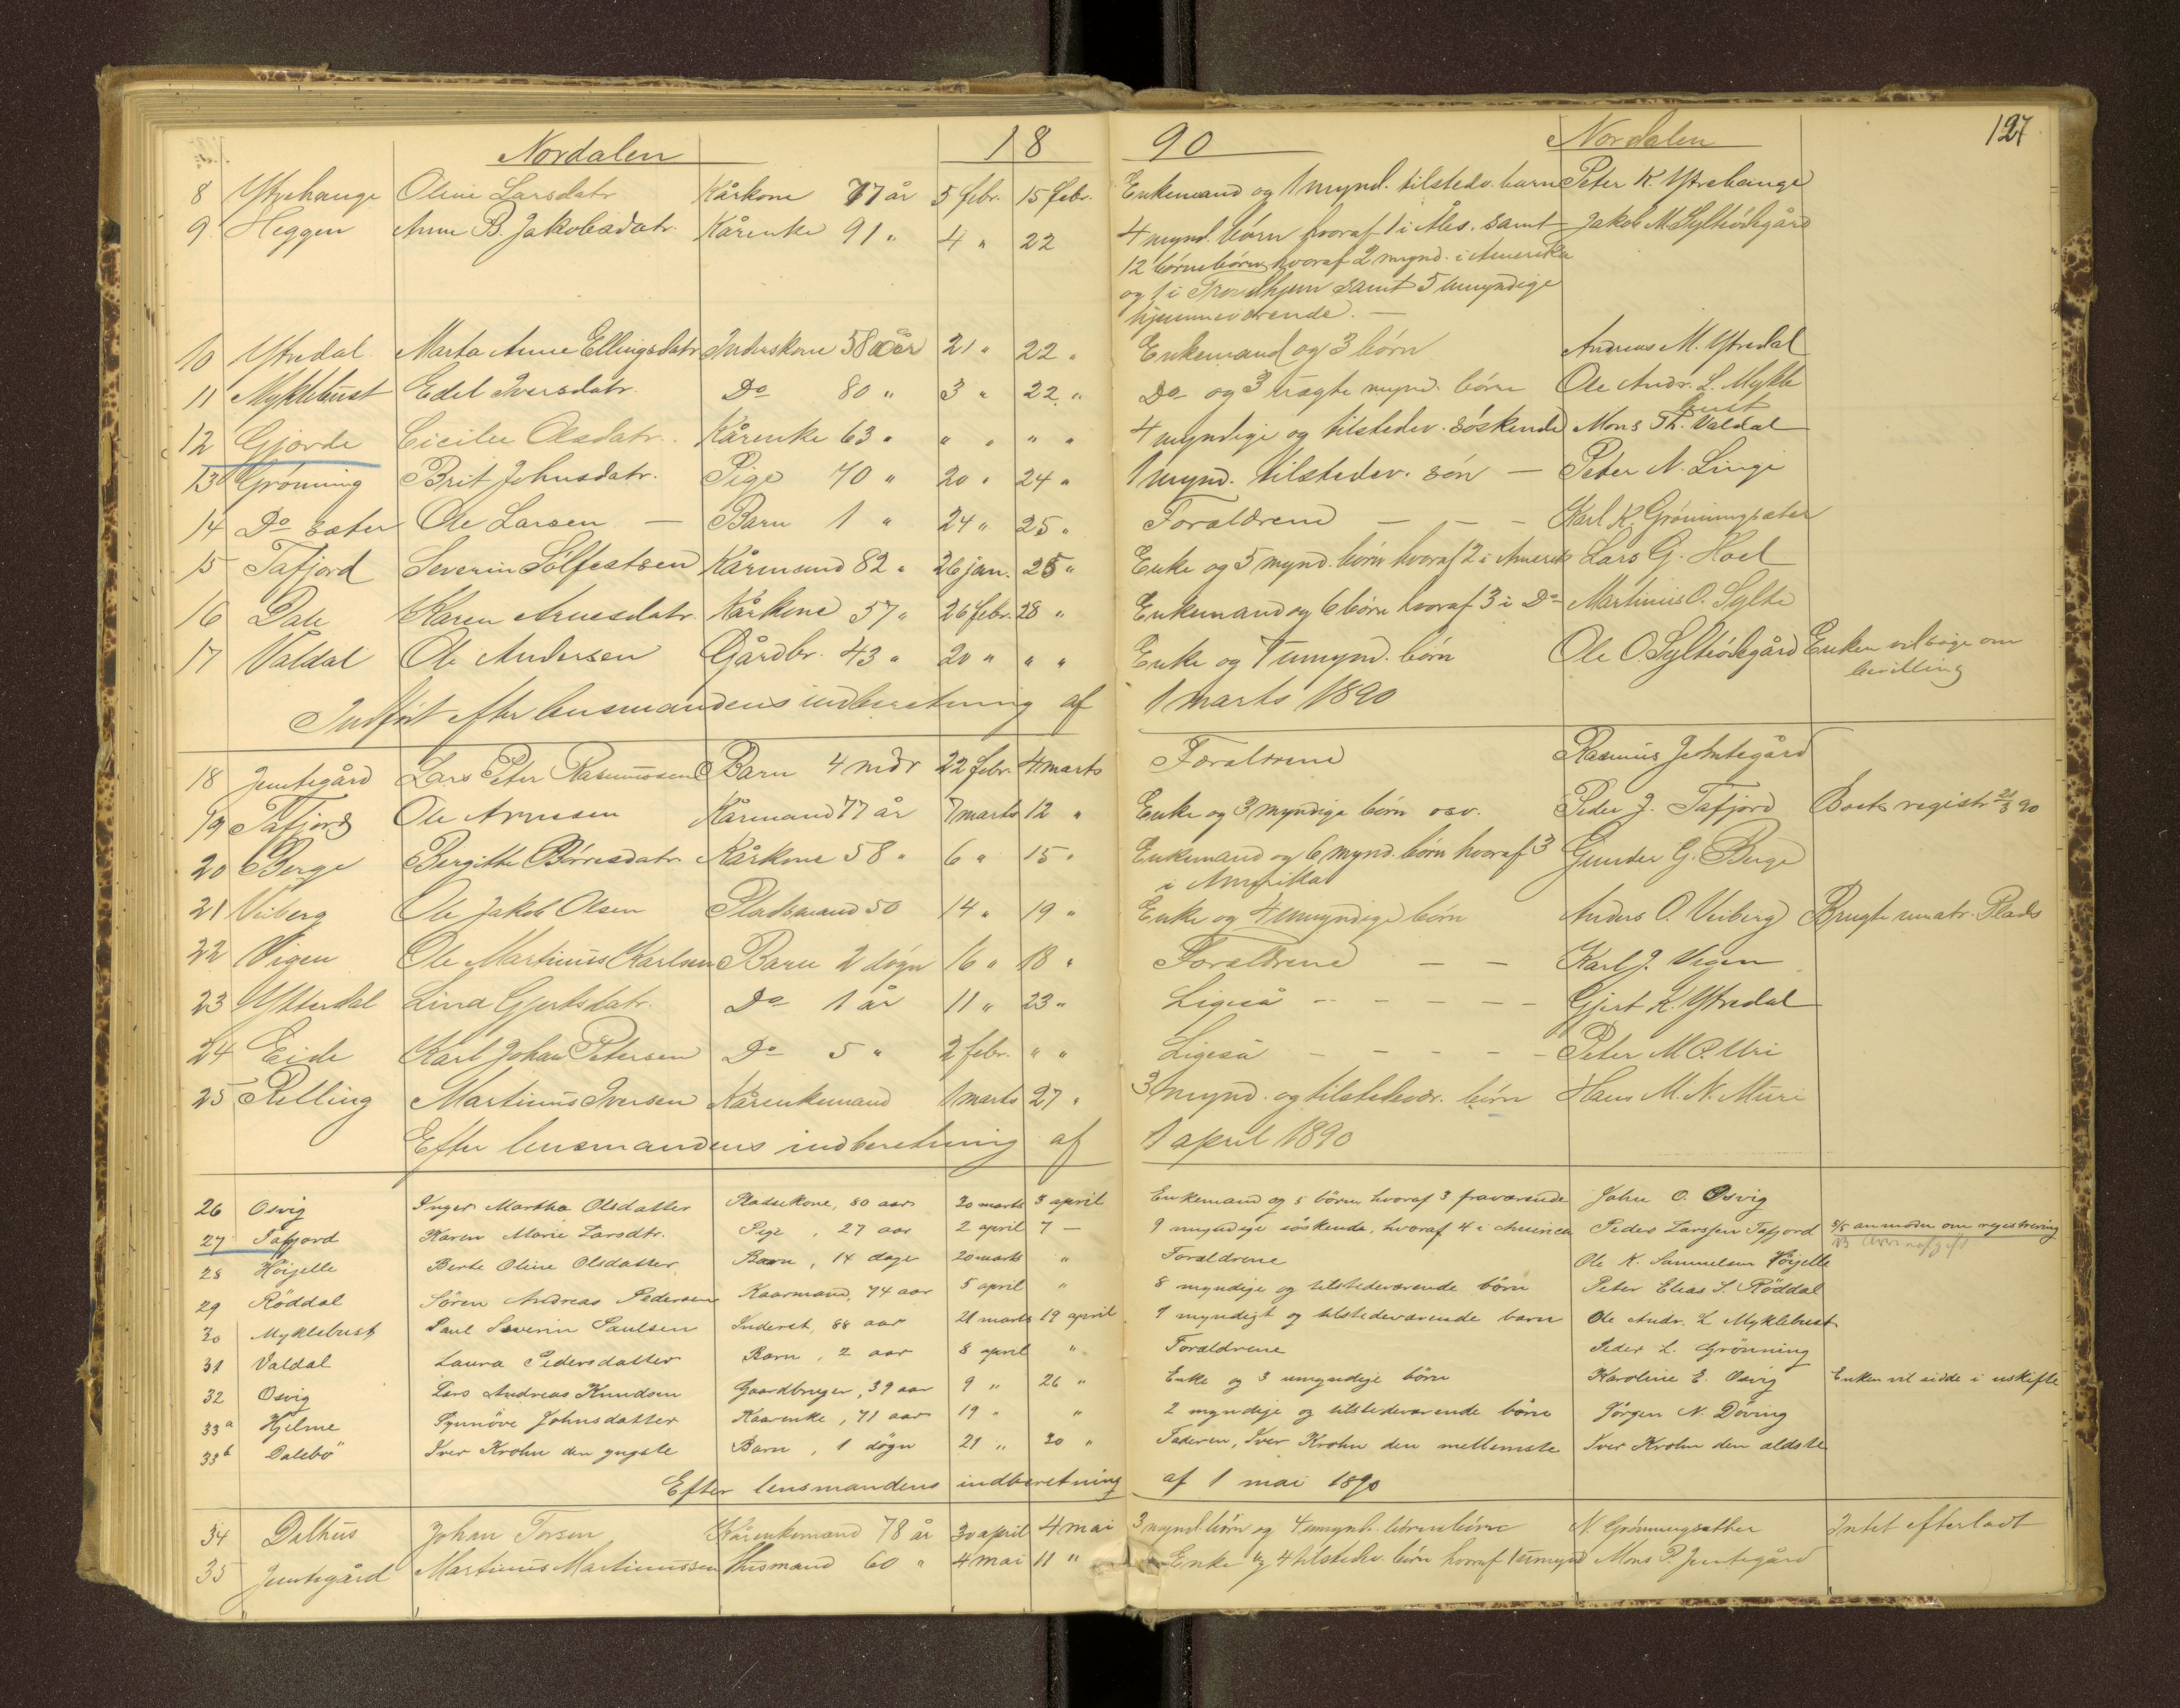 Nordalen 18 90 Nordalen 127
8 Ytrehauge Oline Larsdatr Kårkone 77 år 5 febr. 15 febr. Enkemand og 1 mynd. tilstedv. barn Peter K. Ytrehauge
9 Heggen Anne B. Jakobsdatr. Kårenke 91 " 4 " 22 4 mynd. børn hvoraf 1 i Åles. samt Jakob M. Sylteødegård
12 børnebørn, hvoraf 2 mynd. i Amerika
og 1 i Trondhjem samt 5 umyndige
hjemmeværende. —
10 Ytredal Marta Anne Ellingsdatr Inderskone 58 år 21 " 22 " Enkemand og 3 børn Andreas M. Ytredal
11 Myklebust Edel Iversdatr. Do 80 " 3 " 22 " Do og 3 ugifte mynd. børn Ole Andr. L. Mykle
bust
12 Gjørde Cicilie Olsdatr. Kårenke 63 " " " " " 4 myndige og tilstedev. søskende Mons Th. Valdal
13 Grønning Brit Johnsdatr. Pige 70 " 20 " 24 " 1 mynd. tilstedev. søn — Peter N. Linge
14 Do sæter Ole Larsen — Barn 1 " 24 " 25 " Forældrene — — — Karl K. Grønningsæter
15 Tafjord Severin Sølfestsen Kårmand 82 " 26 jan. 25 " Enke og 5 mynd. børn hvoraf 2 i Amerik Lars G. Hoel
16 Dale Karen Arnesdatr. Kårkone 57 " 26 febr. 28 " Enkemand og 6 børn hvoraf 3 i Do Martinus O. Sylte
17 Valdal Ole Andersen Gårdbr. 43 " 20 " " " Enke og 7 umynd. børn Ole O. Sylteødegård Enken vil søge om
bevilling
Indført efter lensmandens indberetning af 1 marts 1890
18 Jemtegård Lars Peter Rasmussen Barn 4 mdr 22 febr. 4 marts Forældrene Rasmus Jemtegård
19 Tafjord Ole Arnesen Kårmand 77 år 7 marts 12 " Enke og 3 myndige børn osv. Peder J. Tafjord Boets registr 21/3 90
20 Berge Bergitte Børresdatr. Kårkone 58 " 6 " 15 " Enkemand og 6 mynd. børn hvoraf 3 Gunder G. Berge
i Amerika
21 Veiberg Ole Jakob Olsen Pladsmand 50 14 " 19 " Enke og 4 umyndige børn Anders O. Veiberg Brugte umatr. Plads
22 Vigen Ole Martinus Karlsen Barn 2 døgn 16 " 18 " Forældrene — — Karl J. Vigen
23 Ytterdal Lina Gjertsdatr. Do 1 år 11 " 23 " Ligeså - - - - - Gjert K. Ytredal
24 Eide Karl Johan Petersen Do 5 " 2 febr. " " Ligeså - - - - - Peter M. P. Uri
25 Relling Martinus Iversen Kårenkemand 1 marts 27 " 3 mynd. og tilstedevær. børn Hans M. N. Muri
Efter lensmandens indberetning af 1 april 1890
26 Osvig Inger Martha Olsdatter Pladsekone, 80 aar 20 marts 3 april Enkemand og 5 børn hvoraf 3 fraværende John O. Osvig
27 Tafjord Karen Marie Larsdtr. Pige, 27 aar 2 april 7 — 9 myndige søskende, hvoraf 4 i America Peder Larssen Tafjord 3/5 anmoder om registrering
28 Høijelle Berte Oline Olsdatter Barn, 14 dage 20 marts " Forældrene Ole K. Samuelsen Høijelle
29 Røddal Søren Andreas Pedersen Kaarmand, 74 aar 5 april " 8 myndige og tilstedeværende børn Peter Elias S. Røddal
30 Myklebust Paul Severin Paulsen Inderst, 88 aar 21 marts 19 april 1 myndigt og tilstedeværende barn Ole Andr. L. Myklebust
31 Valdal Laura Pedersdatter Barn, 2 aar 8 april " Forældrene Peder L. Grønning
32 Osvig Lars Andreas Knudsen Gaardbruger, 39 aar 9 " 26 " Enke og 3 umyndige børn Karoline E. Osvig Enken vil sidde i uskifte
33a Hjelme Synnøve Johnsdatter Kaarenke, 71 aar 19 " " 2 myndige og tilstedeværende børn Jørgen N. Døving
33b Dalebø Iver Krohn den yngste Barn, 1 døgn 21 " 30 " Faderen, Iver Krohn den mellemste Iver Krohn den ældste
Efter lensmandens indberetning af 1 mai 1890
34 Dalhus Johan Torsen Kårenkemand 78 år 30 april 4 mai 3 mynd. børn og 4 umynd. børnebørn N. Grønningsæther Intet efterladt
35 Jemtegård Martinus Martinussen Husmand 60 " 4 mai 11 " Enke og 4 tilstedev. børn hvoraf 1 umynd Mons P. Jemtegård